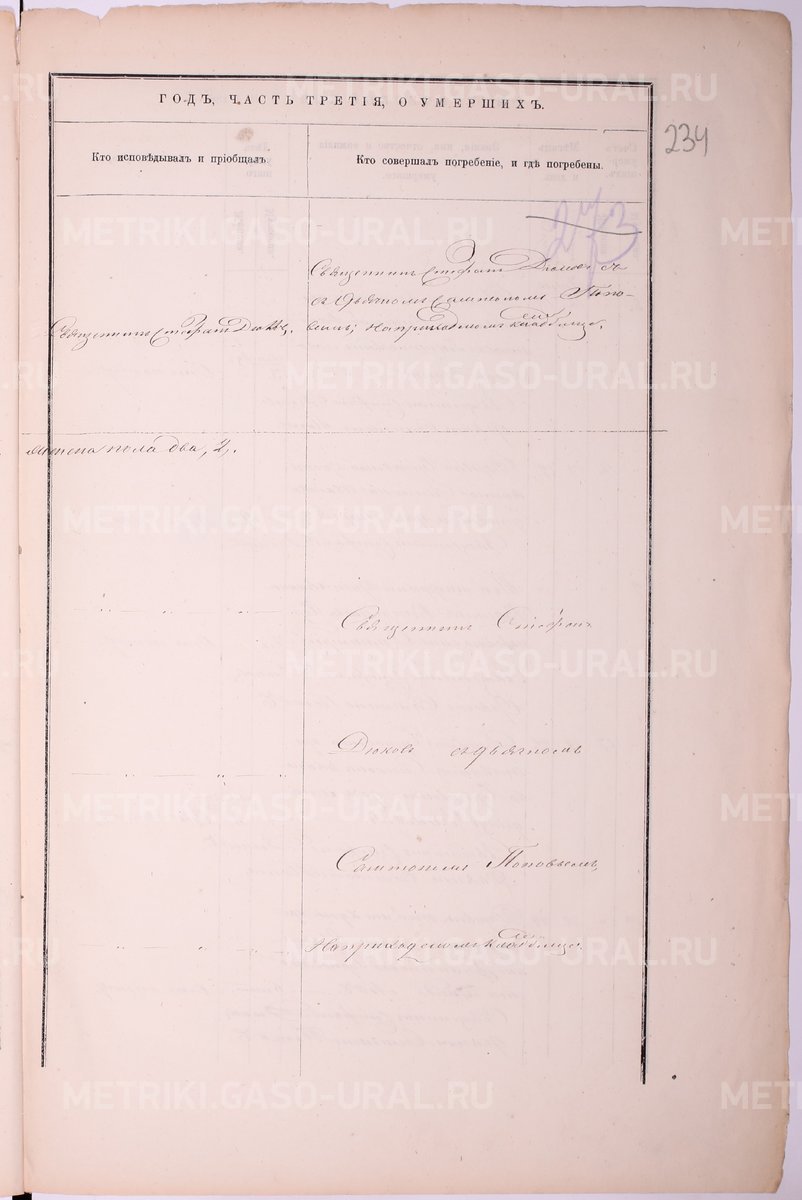 ГОДЪ, ЧАСТЬ ТРЕТІЯ, О УМЕРШИХЪ.
234
Кто исповѣдывалъ и пріобщалъ.
Кто совершалъ погребеніе, и гдѣ погребены.
273
Священникъ Стефанъ Дюковъ съ
Поповымъ; на приходскомъ кладбище.
Священникъ Стефанъ Дюковъ.
женска пола два, 2,.
Священникъ Стефанъ
Дюковъ съ дьячкомъ
Поповымъ,
на приходскомъ кладбище.
METRIKI.GASO-URAL.RU